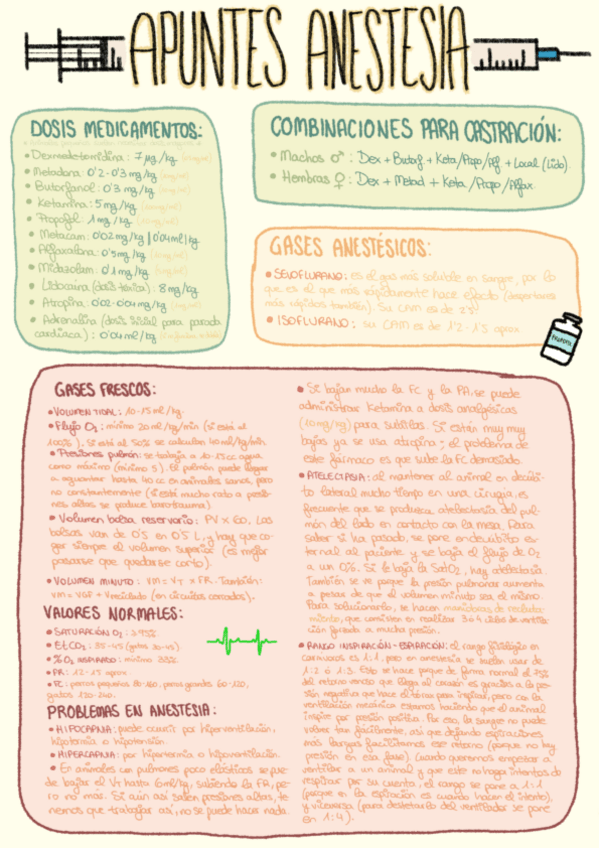 APUNTES ANESTESIA
DOSIS MEDICAMENTOS:
• Dexmedetomidina: 7 µg/kg
• Metadona: 0'2-0'3 mg/kg
• Butorfanol: 0'3 mg/kg
• Ketamina: 5 mg/kg
• Propofol: 1 mg/kg
• Metacam: 0'02 mg/kg | 0'04 ml/kg
• Alfaxalona: 0'5 mg/kg
• Midazolam: 0'1 mg/kg
• Lidocaína (dosis tóxica): 8 mg/kg
• Atropina: 0'02-0'04 mg/kg
• Adrenalina (dosis inicial para parada
cardíaca): 0'04 ml/kg
COMBINACIONES PARA CASTRACIÓN:
• Machos ♂: Dex + Butorf + Keta/Propo/Alf + Local (Lido).
• Hembras ♀: Dex + Metad + Keta/Propo/Alfax.
GASES ANESTÉSICOS:
• SEVOFLURANO: es el gas más soluble en sangre, por lo
que es el que más rápidamente hace efecto (despertares
más rápidos también). Su CAM es de 2'3
• ISOFLURANO: su CAM es de 1'2-1'3 aprox
GASES FRESCOS:
• VOLUMEN TIDAL: 10-15 ml/kg.
• Flujo O₂: mínimo 20 ml/kg/min (si está al
100%). Si está al 50% se calculan 40 ml/kg/min.
• Presiones pulmón: se trabaja a 10-15 cc agua
como máximo (mínimo 5). El pulmón puede llegar
a aguantar hasta 40 cc en animales sanos, pero
no constantemente (si está mucho rato a presio-
nes altas se produce barotrauma).
• Volumen bolsa reservorio: PV x 60. Las
bolsas van de 0'5 en 0'5 L, y hay que co-
ger siempre el volumen superior (es mejor
pasarse que quedarse corto).
• VOLUMEN MINUTO: VM = VT x FR. También:
VM = VGF + Vreciclado (en circuitos cerrados).
VALORES NORMALES:
• SATURACIÓN O₂: >95%
• EtCO₂: 35-45 (gatos 30-45)
• % O₂ ASPIRADO: mínimo 33%
• PR: 12-15 aprox
• FC: perros pequeños 80-160, perros grandes 60-120,
gatos 120-240.
PROBLEMAS EN ANESTESIA:
• HIPOCAPNIA: puede ocurrir por hiperventilación,
hipotermia o hipotensión.
• HIPERCAPNIA: por hipertermia o hipoventilación.
• En animales con pulmones poco elásticos se pue-
de bajar el VT hasta 6 ml/kg, subiendo la FR, pe-
ro no más. Si aun así salen presiones altas, te-
nemos que trabajar así, no se puede hacer nada.
• Si bajan mucho la FC y la PA, se puede
administrar Ketamina a dosis analgésicas
para subirlas. Si están muy muy
bajas ya se usa atropina; el problema de
este fármaco es que sube la FC demasiado.
• ATELECTASIA: al mantener al animal en decúbi-
to lateral mucho tiempo en una cirugía, es
frecuente que se produzca atelectasia del pul-
món del lado en contacto con la mesa. Para
saber si ha pasado, se pone en decúbito es-
ternal al paciente y se baja el flujo de O₂
a un 0%. Si le baja la SatO₂, hay atelectasia.
También se ve porque la presión pulmonar aumenta
a pesar de que el volumen minuto sea el mismo.
Para solucionarlo, se hacen maniobras de recluta-
miento, que consisten en realizar 3 ó 4 ciclos de venti-
lación forzada a mucha presión.
• RANGO INSPIRACIÓN-ESPIRACIÓN: el rango fisiológico en
carnívoros es 1:1, pero en anestesia se suelen usar de
1:2 ó 1:3. Esto se hace porque de forma normal el 75%
del retorno venoso que llega al corazón es gracias a la pre-
sión negativa que hace el tórax para inspirar, pero con la
ventilación mecánica estamos haciendo que el animal
inspire por presión positiva. Por eso, la sangre no puede
volver tan fácilmente, así que dejando espiraciones
más largas facilitamos ese retorno (porque no hay
presión en esa fase). Cuando queremos empezar a
ventilar a un animal y que este no haga intentos de
respirar por su cuenta, el rango se pone a 1:1
(porque en la espiración es cuando hacen el intento),
y viceversa (para destetarlo del ventilador se pone
en 1:4).